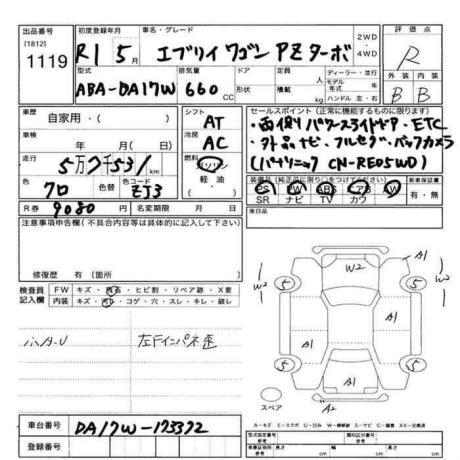 出品番号 初度登録年月 車名・グレード 評価点
[1812]
1119 R1 5月 エブリイワゴン PZターボ 2WD・4WD R
型式 排気量 ドア 定員 ディーラー・並行 外装 内装
ABA-DA17W 660cc 形状 人 積載 kg モデル年式 年 ハンドル 左・右 B B
車歴 自家用・( ) シフト AT セールスポイント(正常に機能するものに限ります)
・両側パワースライドドア・ETC
車検 年 月(日) 冷房 AC ・外品ナビ、フルセグ、バックカメラ
走行 5万7千531km 燃料 ガソリン 軽油 ( ) (パナソニック CN-RE05WD)
色 クロ 色替 色コード ZJ3 装備品(純正品に限り○をつけてください) 新車保証書
PS PW ABS エアB AW 有・無
SR ナビ TV カワ
R券 9080円 名変期限 月 日 後日品
注意事項申告欄(不具合内容等は具体的に記入して下さい)
修復歴 有(箇所
検査員記入欄 FW キズ・飛石・ヒビ割・リペア跡・X要
内装 キズ・汚レ・コゲ・穴・スレ・キレ・破レ
小A-U 左F インパネ歪
W2 A1
W2 5 5 W2
A1 A1
5 5
A1
スペア A2
A-キズ E-エクボ U-凹み W-補修跡 S-サビ C-腐食 XX-交換済
車台番号 DA17W-173372
登録番号
型式指定番号 類別区分番号
参考 参考
長さ cm 幅 cm 高さ cm